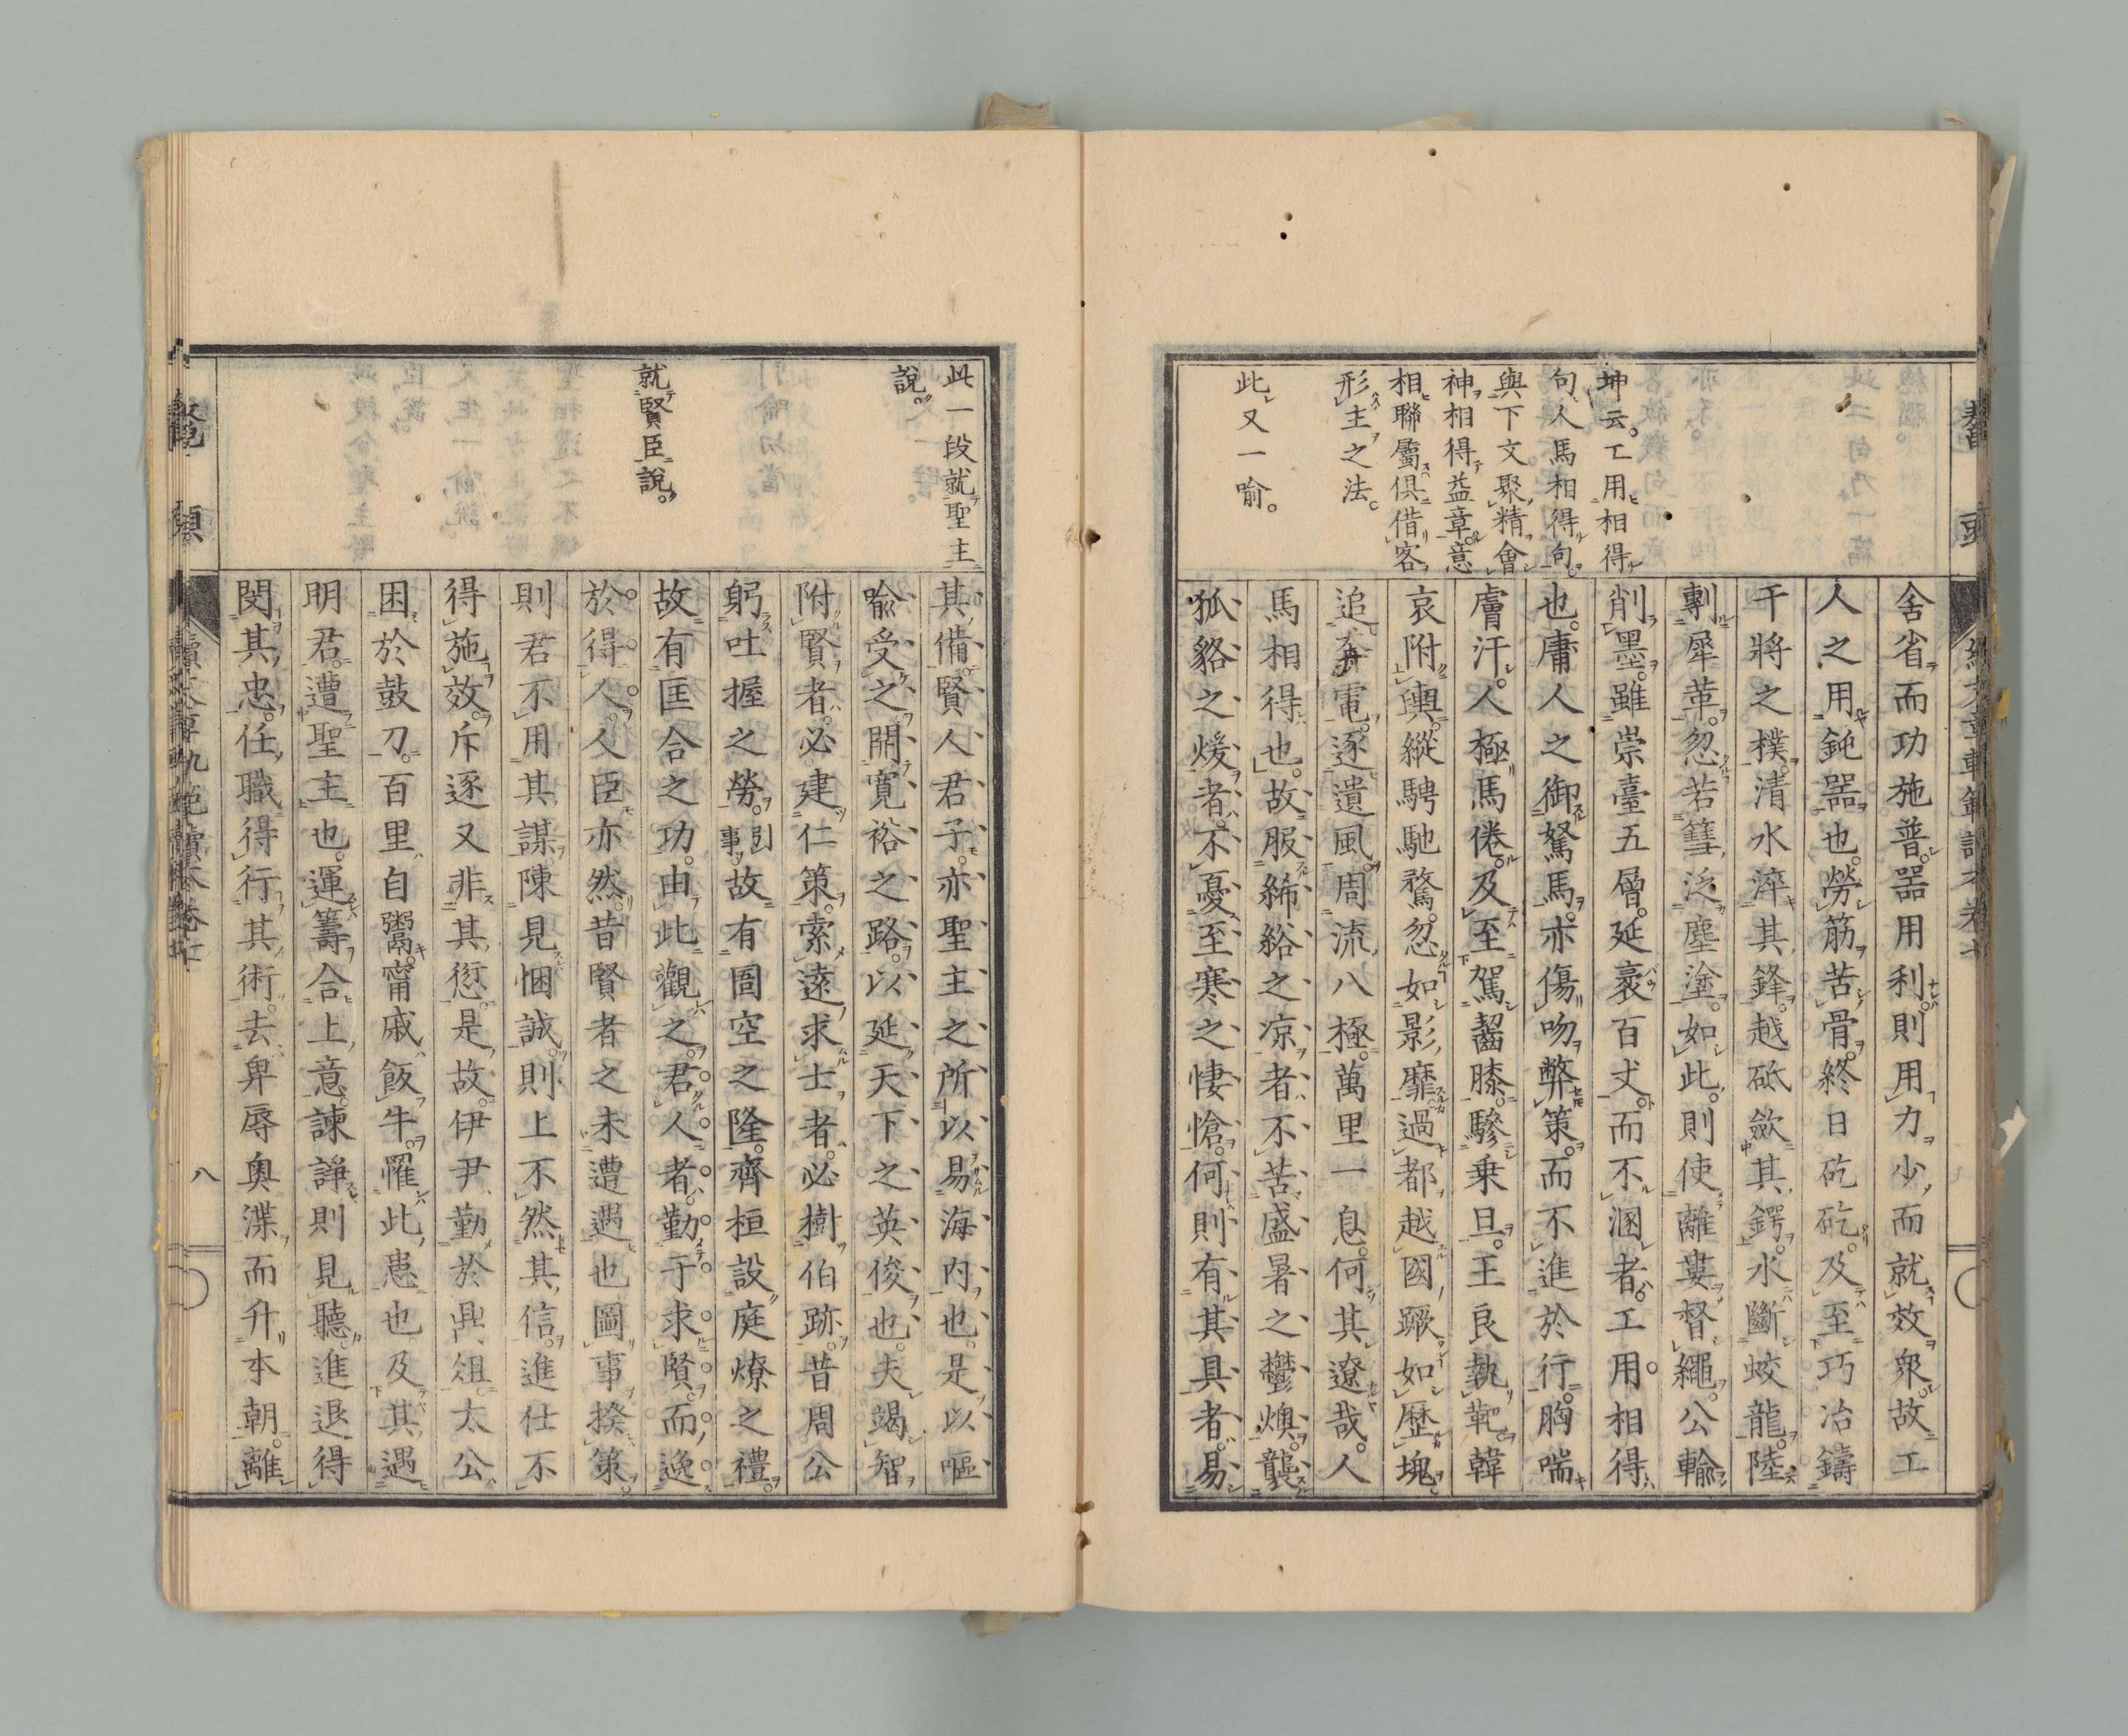 坤云。工用相得
句人馬相得句。
與下文聚精會
神相得益章意
相聯屬俱借客
形主之法。
此又一喻。
舍省而功施普。器用利。則用力少而就效衆。故工
人之用鈍器也。勞筋苦骨。終日矻矻。及至巧冶鑄
干將之樸。清水淬其鋒。越砥斂其鍔。水斷蛟龍。陸
剸犀革。忽若篲泛塵塗。如此。則使離婁督繩。公輸
削墨。雖崇臺五層。延袤百丈而不溷者。工用相得
也。庸人之御駑馬。亦傷吻弊策。而不進於行。胸喘
膚汗。人極馬倦。及至駕齧膝。驂乗旦。王良執靶。韓
哀附輿。縱騁馳騖。忽如影靡。過都越國。蹶如歷塊。
追奔電。逐遺風。周流八極。萬里一息。何其遼哉。人
馬相得也。故服絺綌之凉者。不苦盛暑之鬱燠。襲
狐貉之煖者。不憂至寒之悽愴。何則有其具者。易
此一段就聖主
說。
就賢臣說。
其備。賢人君子。亦聖主之所以易海內也。是以嘔
喩受之。開寬裕之路。以延天下之英俊也。夫竭智
附賢者。必建仁策。索遠求士者。必樹伯跡。昔周公
躬吐握之勞。引事故有圄空之隆。齊桓設庭燎之禮。
故有匡合之功。由此觀之。君人者。勤于求賢。而逸
於得人。人臣亦然。昔賢者之未遭遇也。圖事揆策。
則君不用其謀。陳見悃誠。則上不然其信。進仕不
得施效。斥逐又非其愆。是故。伊尹勤於鼎俎。太公
困於鼓刀。百里自鬻。甯戚飯牛。罹此患也。及其遇
明君。遭聖主也。運籌合上意。諫諍則見聽。進退得
閔其忠。任職得行其術。去卑辱奥渫而升本朝。離
八